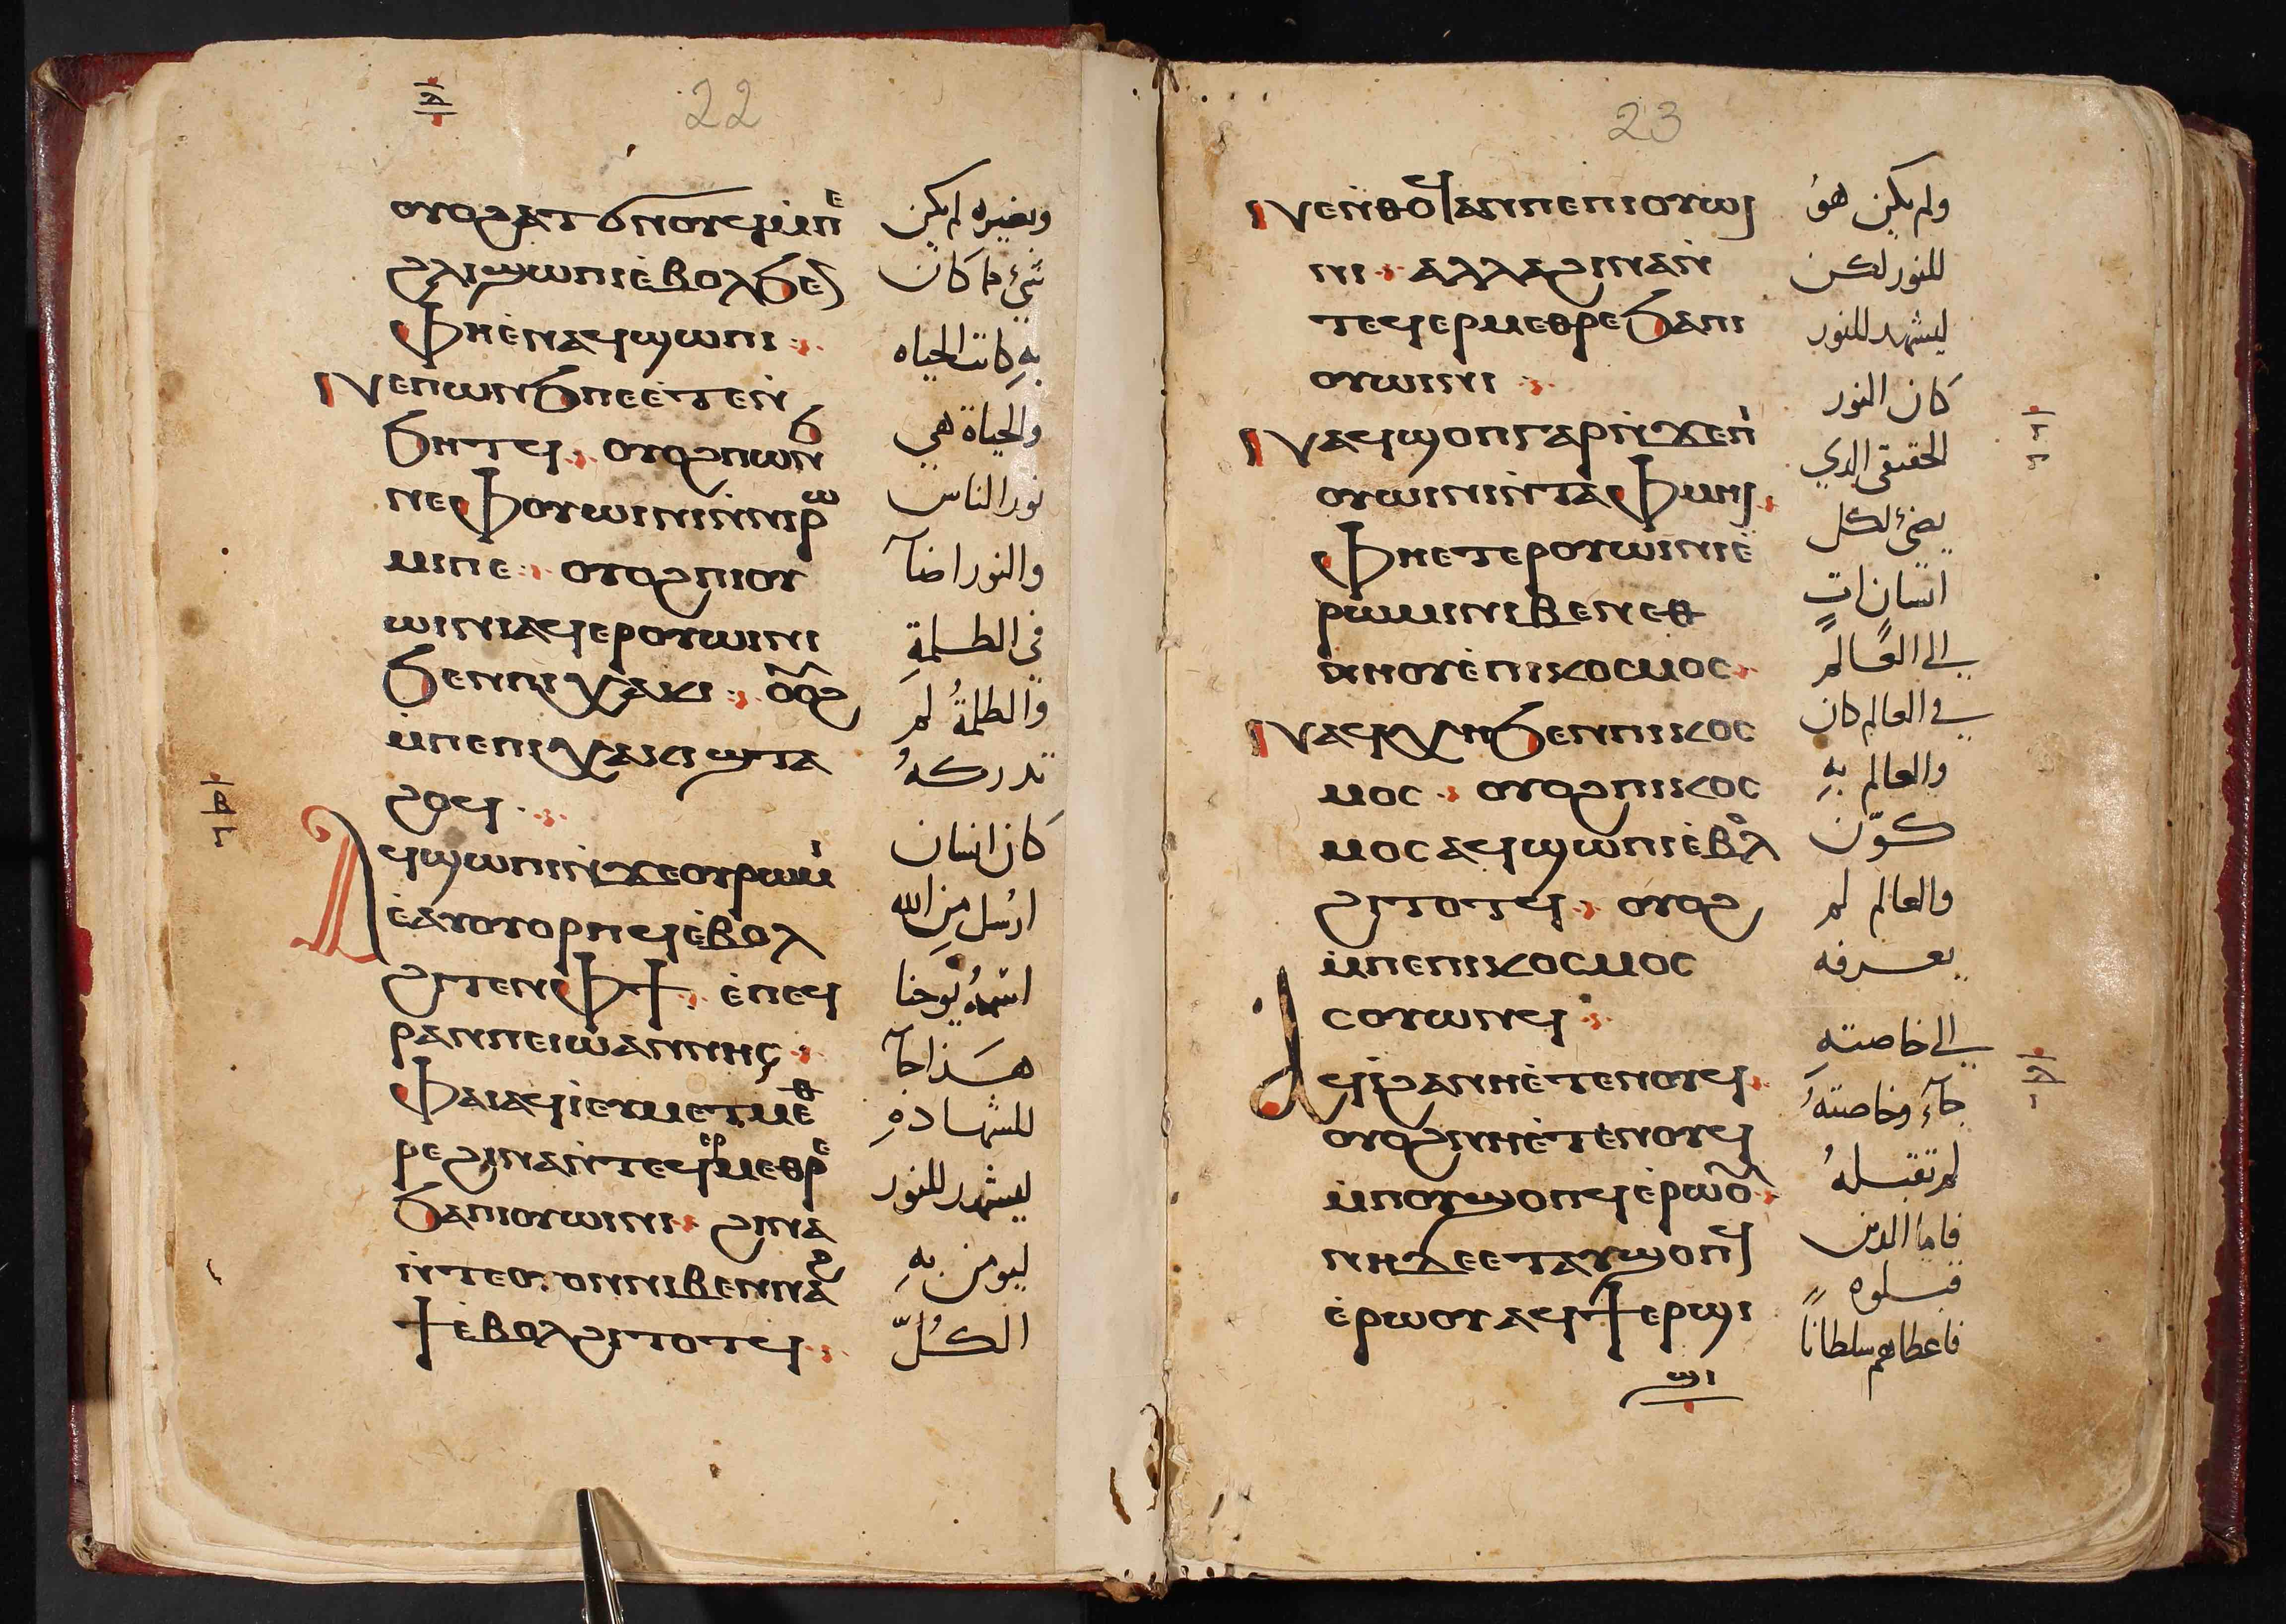 22
ⲟⲩⲟϩⲁⲧϭⲛⲟⲩϥⲙ̇ⲡⲉ
ϩⲗⲓϣⲱⲡⲓⲉ̇ⲃⲟⲗϧⲉⲛ
ⲫⲏⲉ̇ⲛⲁϥϣⲱⲡⲓ
ⲛⲉⲡⲱⲛϧⲡⲉⲉ̇ⲧⲉⲛ̇
ϧⲏⲧϥ ⲟⲩⲟϩⲡⲱⲛϧ
ⲛⲉⲫⲟⲩⲱⲓⲛⲓⲛ̇ⲛⲓⲣⲱ
ⲙⲓⲡⲉ ⲟⲩⲟϩⲡⲓⲟⲩ
ⲱⲓⲛⲓⲁϥⲉⲣⲟⲩⲱⲓⲛⲓ
ϧⲉⲛⲡⲓⲭⲁⲕⲓ ⲟⲩⲟϩ
ⲙ̇ⲡⲉⲡⲓⲭⲁⲕⲓϣⲧⲁ
ϩⲟϥ
ⲁϥϣⲱⲡⲓⲛ̇ϫⲉⲟⲩⲣⲱⲙⲓ
ⲉ̇ⲁⲩⲟⲩⲟⲣⲡϥⲉ̇ⲃⲟⲗ
ϩⲓⲧⲉⲛⲫϯ ⲉ̇ⲡⲉϥ
ⲣⲁⲛⲡⲉⲓⲱⲁⲛⲛⲏⲥ
ⲫⲁⲓⲁϥⲓ̇ⲉⲩⲙⲉⲧⲙⲉⲑ
ⲣⲉϩⲓⲛⲁⲛ̇ⲧⲉϥⲉⲣⲙⲉⲑⲣⲉ
ϧⲁⲡⲓⲟⲩⲱⲓⲛⲓ ϩⲓⲛⲁ
ⲛ̇ⲧⲉⲟⲩⲟⲛⲛⲓⲃⲉⲛⲛⲁϩ
ϯⲉ̇ⲃⲟⲗϩⲓⲧⲟⲧϥ
وبغيره لم يكن
شئ مما كان
به كانت الحياه
والحياة هي
نور الناس
والنور اضآ
في الظلمة
والظلمة لم
تدركه
كان انسان
ارسل من الله
اسمه يوحنا
هذا جآ
للشهاده
ليشهد للنور
ليومن به
الكلّ
23
ⲛⲉⲛ̇ⲑⲟϥⲁⲛⲡⲉⲡⲓⲟⲩⲱⲓ
ⲛⲓ ⲁⲗⲗⲁϩⲓⲛⲁⲛ̇
ⲧⲉϥⲉⲣⲙⲉⲑⲣⲉϧⲁⲡⲓ
ⲟⲩⲱⲓⲛⲓ
ⲛⲁϥϣⲟⲡⲅⲁⲣⲛ̇ϫⲉⲡⲓ
ⲟⲩⲱⲓⲛⲓⲛ̇ⲧⲁⲫⲙⲏⲓ
ⲫⲏⲉⲧⲉⲣⲟⲩⲱⲓⲛⲓⲉ̇
ⲣⲱⲙⲓⲛⲓⲃⲉⲛⲉⲑ
ⲛⲏⲟⲩⲉ̇ⲡⲓⲕⲟⲥⲙⲟⲥ
ⲛⲁϥⲭⲏϧⲉⲛⲡⲓⲕⲟⲥ
ⲙⲟⲥ ⲟⲩⲟϩⲡⲓⲕⲟⲥ
ⲙⲟⲥⲁϥϣⲱⲡⲓⲉ̇ⲃⲟⲗ
ϩⲓⲧⲟⲧϥ ⲟⲩⲟϩ
ⲙ̇ⲡⲉⲡⲓⲕⲟⲥⲙⲟⲥ
ⲥⲟⲩⲱⲛϥ
ⲁϥⲓ̇ϩⲁⲛⲏⲉ̇ⲧⲉⲛⲟⲩϥ
ⲟⲩⲟϩⲛⲏⲉ̇ⲧⲉⲛⲟⲩϥ
ⲙ̇ⲡⲟⲩϣⲟⲡϥⲉ̇ⲣⲱⲟⲩ
ⲛⲏⲇⲉⲉⲧⲁⲩϣⲟⲡϥ
ⲉ̇ⲣⲱⲟⲩⲁϥϯⲉⲣϣⲓ
ϣⲓ
ولم يكن هو
للنور لكن
ليشهد للنور
كان النور
الحقيقى الذي
يضئ لكل
انسان اتٍ
الى العالم
في العالم كان
والعالم به
كوّن
والعالم لم
يعرفه
الى خاصته
جآء وخاصته
لم تقبله
فاما الذين
قبلوه
فاعطاهم سلطانًا